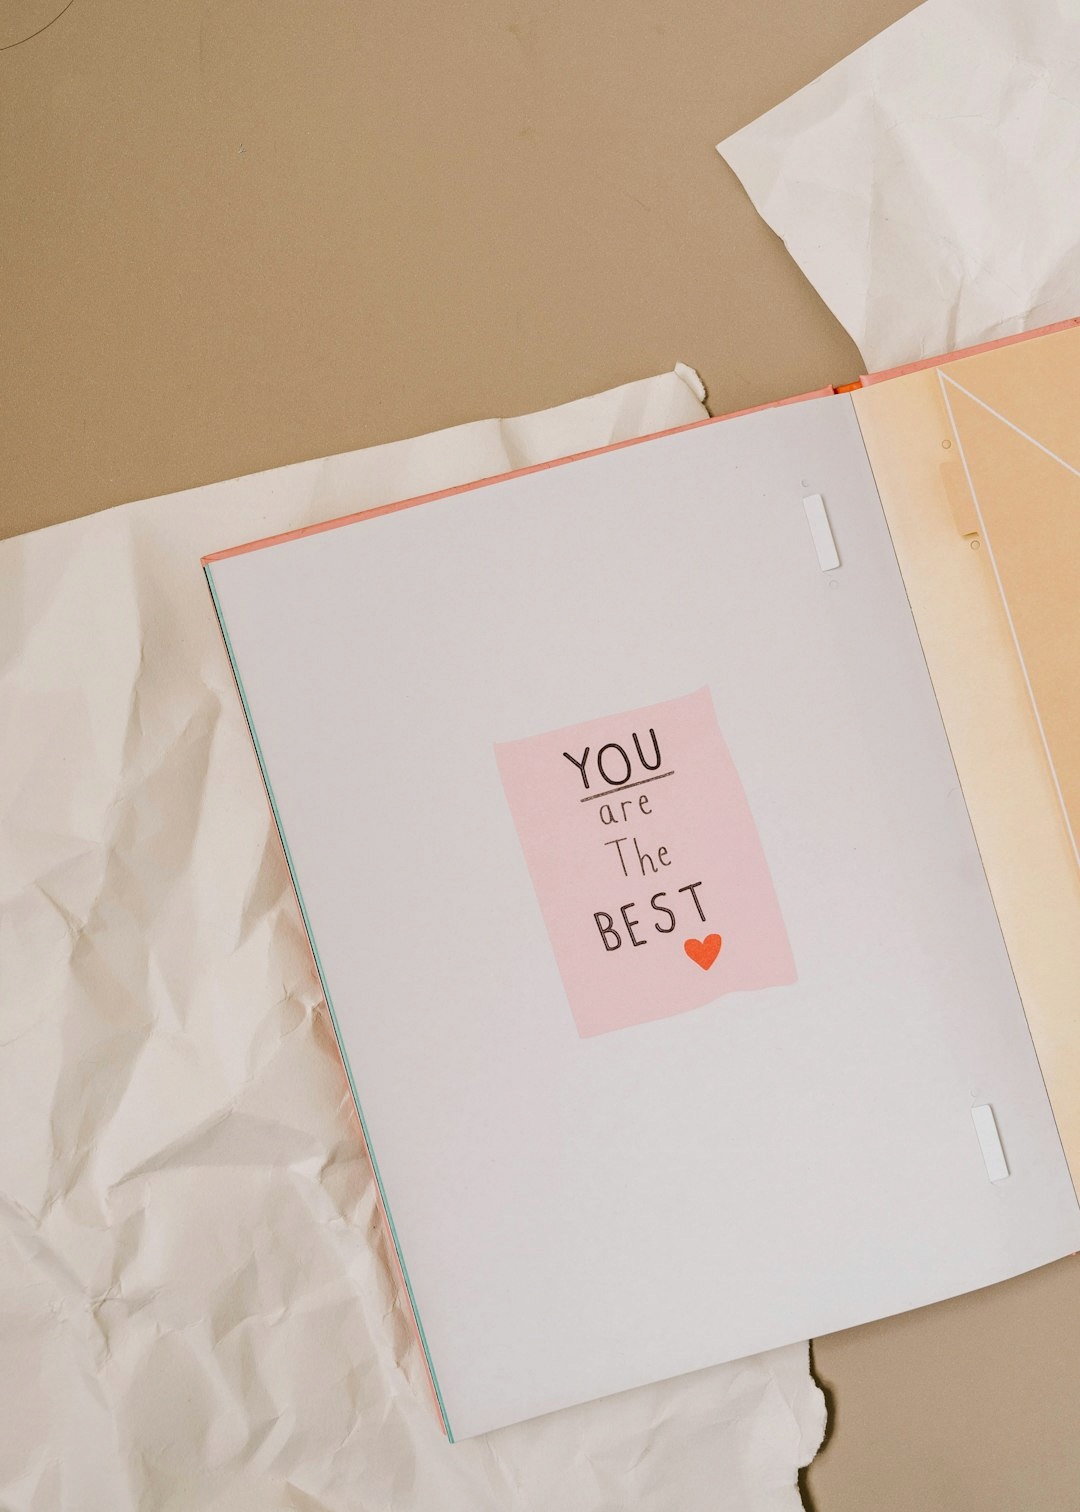 YOU
are
The
BEST